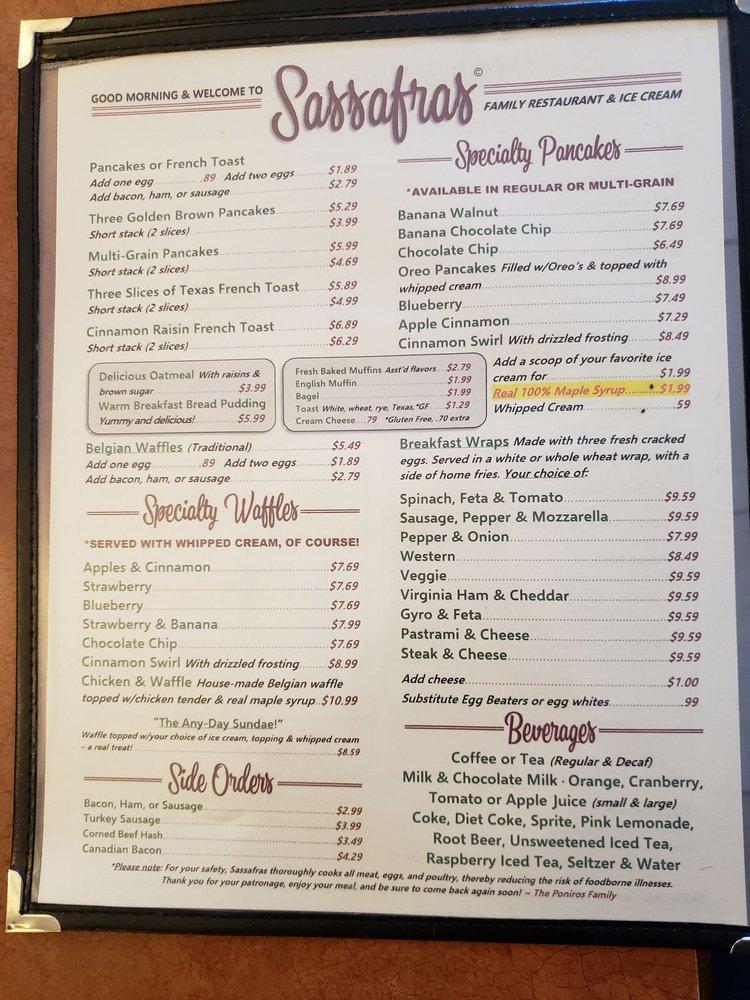 GOOD MORNING & WELCOME TO
Sassafras©
FAMILY RESTAURANT & ICE CREAM
Pancakes or French Toast
Add one egg .89 Add two eggs $1.89
Add bacon, ham, or sausage $2.79
Three Golden Brown Pancakes $5.29
Short stack (2 slices) $3.99
Multi-Grain Pancakes $5.99
Short stack (2 slices) $4.69
Three Slices of Texas French Toast $5.89
Short stack (2 slices) $4.99
Cinnamon Raisin French Toast $6.89
Short stack (2 slices) $6.29
Delicious Oatmeal With raisins &
brown sugar $3.99
Warm Breakfast Bread Pudding
Yummy and delicious! $5.99
Fresh Baked Muffins Asst'd flavors $2.79
English Muffin $1.99
Bagel $1.99
Toast White, wheat, rye, Texas,*GF $1.29
Cream Cheese .79 *Gluten Free, .70 extra
Belgian Waffles (Traditional) $5.49
Add one egg .89 Add two eggs $1.89
Add bacon, ham, or sausage $2.79
Specialty Waffles
*SERVED WITH WHIPPED CREAM, OF COURSE!
Apples & Cinnamon $7.69
Strawberry $7.69
Blueberry $7.69
Strawberry & Banana $7.99
Chocolate Chip $7.69
Cinnamon Swirl With drizzled frosting $8.99
Chicken & Waffle House-made Belgian waffle
topped w/chicken tender & real maple syrup $10.99
"The Any-Day Sundae!"
Waffle topped w/your choice of ice cream, topping & whipped cream
– a real treat! $8.59
Side Orders
Bacon, Ham, or Sausage $2.99
Turkey Sausage $3.99
Corned Beef Hash $3.49
Canadian Bacon $4.29
Specialty Pancakes
*AVAILABLE IN REGULAR OR MULTI-GRAIN
Banana Walnut $7.69
Banana Chocolate Chip $7.69
Chocolate Chip $6.49
Oreo Pancakes Filled w/Oreo's & topped with
whipped cream $8.99
Blueberry $7.49
Apple Cinnamon $7.29
Cinnamon Swirl With drizzled frosting $8.49
Add a scoop of your favorite ice
cream for $1.99
Real 100% Maple Syrup $1.99
Whipped Cream .59
Breakfast Wraps Made with three fresh cracked
eggs. Served in a white or whole wheat wrap, with a
side of home fries. Your choice of:
Spinach, Feta & Tomato $9.59
Sausage, Pepper & Mozzarella $9.59
Pepper & Onion $7.99
Western $8.49
Veggie $9.59
Virginia Ham & Cheddar $9.59
Gyro & Feta $9.59
Pastrami & Cheese $9.59
Steak & Cheese $9.59
Add cheese $1.00
Substitute Egg Beaters or egg whites .99
Beverages
Coffee or Tea (Regular & Decaf)
Milk & Chocolate Milk · Orange, Cranberry,
Tomato or Apple Juice (small & large)
Coke, Diet Coke, Sprite, Pink Lemonade,
Root Beer, Unsweetened Iced Tea,
Raspberry Iced Tea, Seltzer & Water
*Please note: For your safety, Sassafras thoroughly cooks all meat, eggs, and poultry, thereby reducing the risk of foodborne illnesses.
Thank you for your patronage, enjoy your meal, and be sure to come back again soon! ~ The Poniros Family